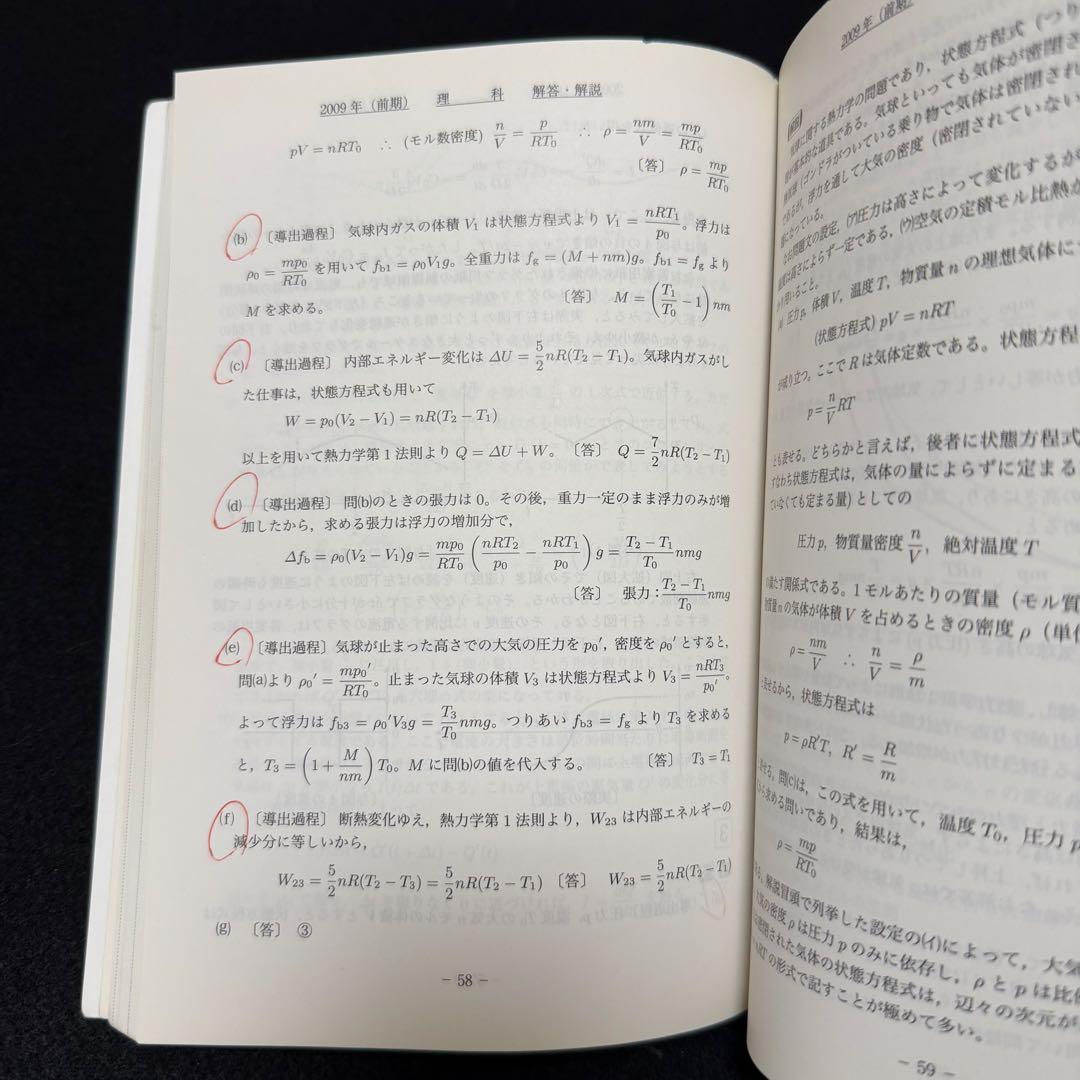 2009年(前期) 理 科 解答・解説
pV=nRT₀ ∴ (モル数密度) n/V = p/RT₀ ∴ ρ = nm/V = mp/RT₀
〔答〕 ρ = mp/RT₀
(b) 〔導出過程〕 気球内ガスの体積 V₁ は状態方程式より V₁ = nRT₁/p₀。浮力は
ρ₀ = mp₀/RT₀ を用いて f_b1 = ρ₀V₁g。全重力は f_g = (M+nm)g。f_b1 = f_g より
M を求める。 〔答〕 M = (T₁/T₀ − 1)nm
(c) 〔導出過程〕 内部エネルギー変化は ΔU = 5/2 nR(T₂−T₁)。気球内ガスがし
た仕事は，状態方程式も用いて
W = p₀(V₂−V₁) = nR(T₂−T₁)
以上を用いて熱力学第1法則より Q = ΔU+W。 〔答〕 Q = 7/2 nR(T₂−T₁)
(d) 〔導出過程〕 問(b)のときの張力は0。その後，重力一定のまま浮力のみが増
加したから，求める張力は浮力の増加分で，
Δf_b = ρ₀(V₂−V₁)g = mp₀/RT₀ (nRT₂/p₀ − nRT₁/p₀) g = (T₂−T₁)/T₀ nmg
〔答〕 張力：(T₂−T₁)/T₀ nmg
(e) 〔導出過程〕 気球が止まった高さでの大気の圧力を p₀′，密度を ρ₀′ とすると，
問(a)より ρ₀′ = mp₀′/RT₀。止まった気球の体積 V₃ は状態方程式より V₃ = nRT₃/p₀′。
よって浮力は f_b3 = ρ₀′V₃g = T₃/T₀ nmg。つりあい f_b3 = f_g より T₃ を求める
と，T₃ = (1 + M/nm) T₀。M に問(b)の値を代入する。 〔答〕 T₃ = T₁
(f) 〔導出過程〕 断熱変化ゆえ，熱力学第1法則より，W₂₃ は内部エネルギーの
減少分に等しいから，
W₂₃ = 5/2 nR(T₂−T₃) = 5/2 nR(T₂−T₁) 〔答〕 W₂₃ = 5/2 nR(T₂−T₁)
(g) 〔答〕 ③
− 58 −
2009年(前期)
に関する熱力学の問題であり，状態方程式(つり
基本的な道具である。気球といっても気体が密閉さ
(ゴンドラがついている乗り物で気体は密閉され
であるが，浮力を通して大気の密度(密閉されていない
になっている。
問題文の設定，(ア)圧力は高さによって変化するが
は高さによらず一定である，(ウ)空気の定積モル比熱が
用いること。
圧力 p，体積 V，温度 T，物質量 n の理想気体に
(状態方程式) pV = nRT
が成り立つ。ここで R は気体定数である。状態方程
p = n/V RT
とも表せる。どちらかと言えば，後者に状態方程式
すなわち状態方程式は，気体の量によらずに定まる
ていなくても定まる量)としての
圧力 p，物質量密度 n/V，絶対温度 T
の満たす関係式である。1モルあたりの質量(モル質
物質量 n の気体が体積 V を占めるときの密度 ρ (単位
ρ = nm/V ∴ n/V = ρ/m
と表せるから，状態方程式は
p = ρR′T，R′ = R/m
と表せる。問(c)は，この式を用いて，温度 T₀，圧力 p
から求める問いであり，結果は，
ρ = mp/RT₀
解説冒頭で列挙した設定の(イ)によって，大気
大気の密度 ρ は圧力 p のみに依存し，ρ と p は比
密閉された気体の状態方程式は，辺々の次元が
nRT の形式で記すことが極めて多い。
− 59 −